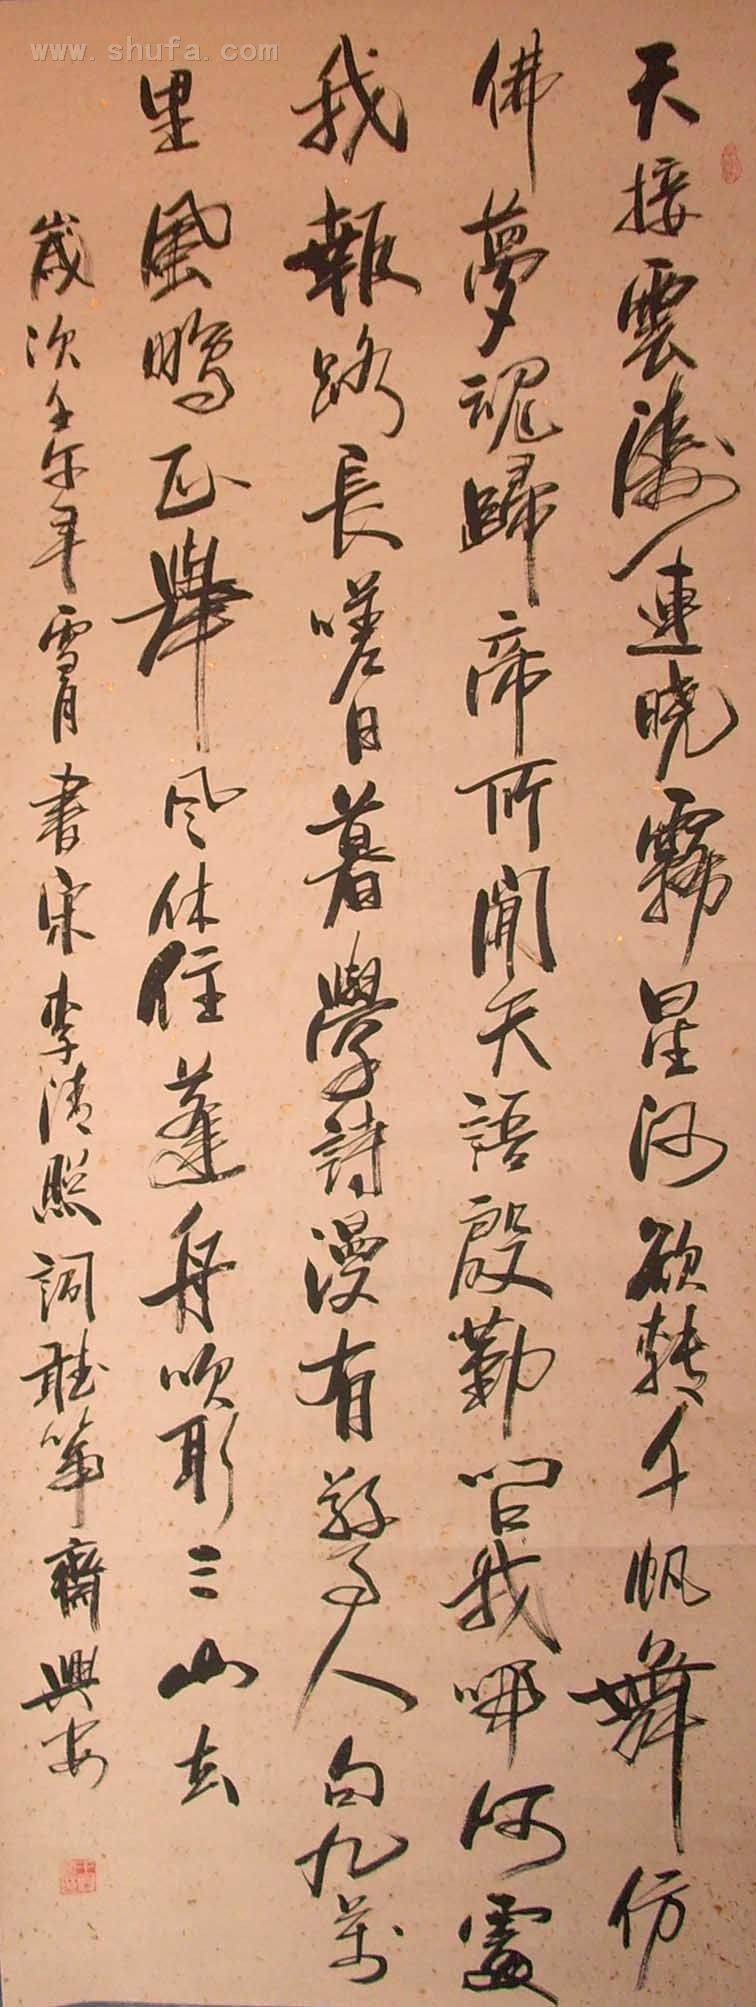 www.shufa.com
天接雲濤連曉霧星河欲轉千帆舞仿
佛夢魂歸帝所聞天語殷勤問我歸何處
我報路長嗟日暮學詩漫有驚人句九萬
里風鵬正舉風休住蓬舟吹取三山去
歲次壬午年雪月書宋李清照詞聽箏齋興安